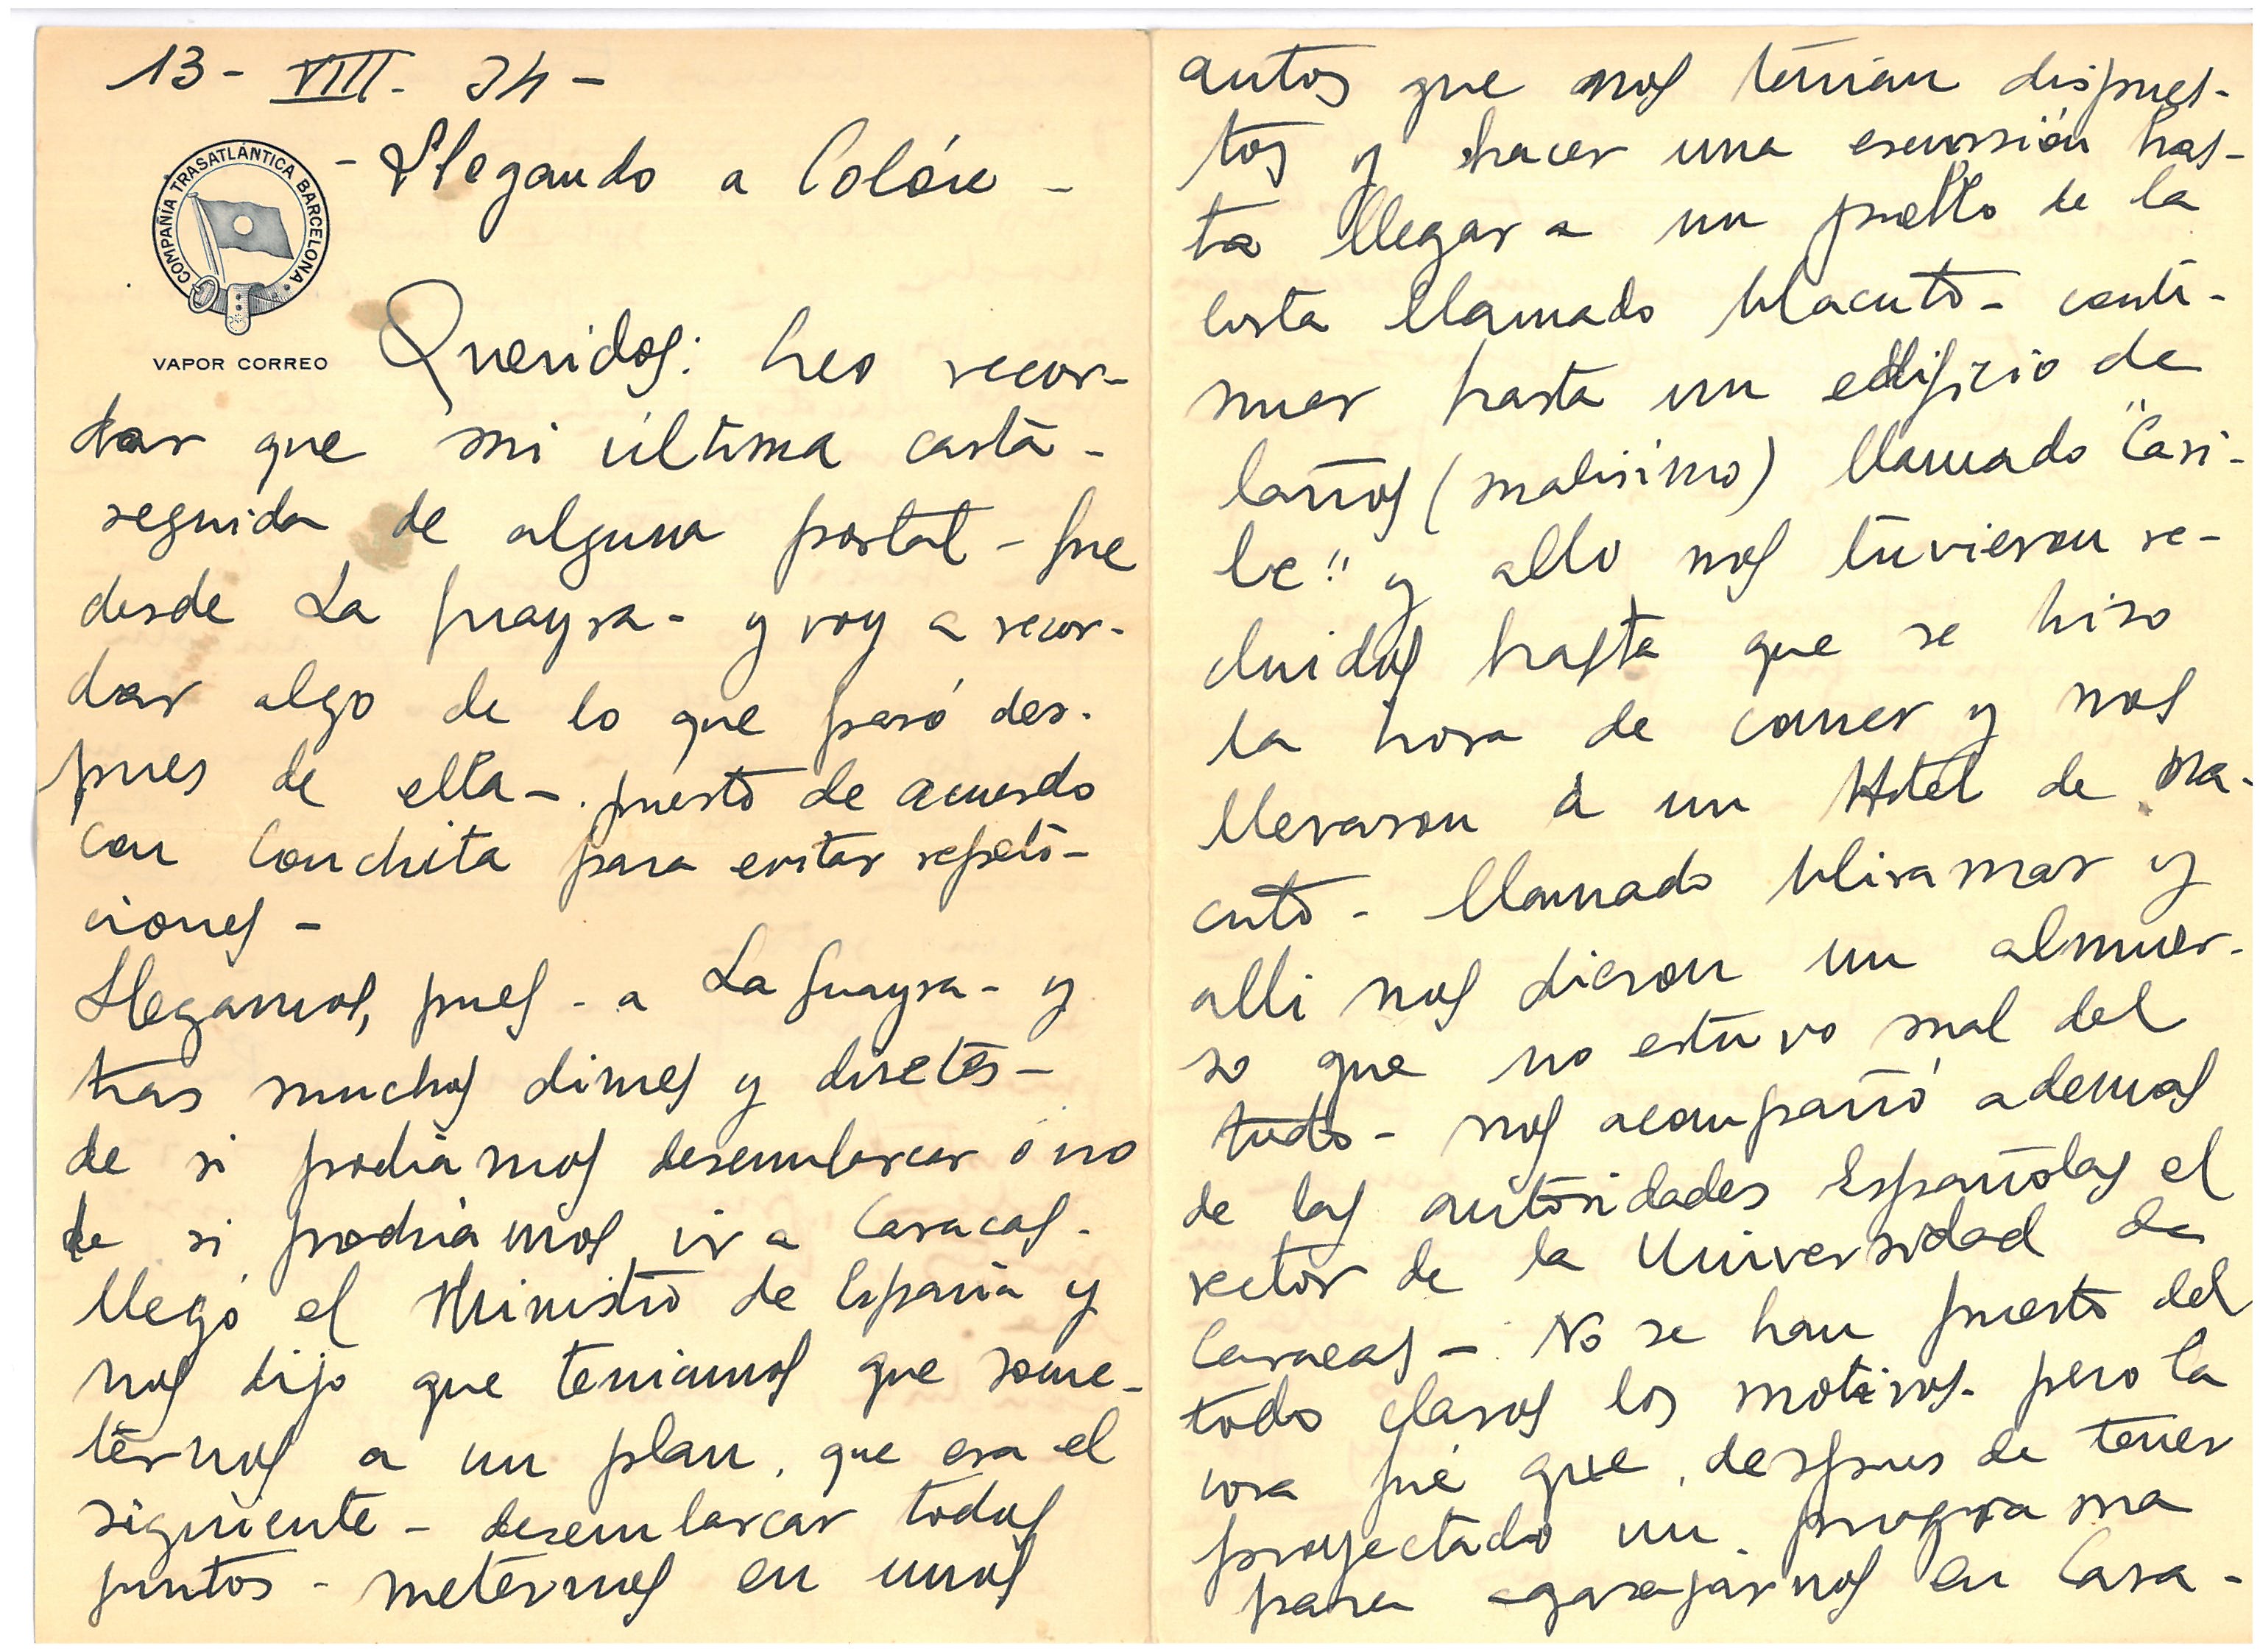 13 - VIII - 34 -
- Llegando a Colón -
COMPAÑÍA TRASATLÁNTICA BARCELONA
VAPOR CORREO
Queridos: Creo recor-
dar que mi última carta -
seguida de alguna postal - fue
desde La Guayra - y voy a recor-
dar algo de lo que pasó des-
pues de ella -. puesto de acuerdo
con Conchita para evitar repeti-
ciones -
Llegamos, pues - a La Guayra - y
tras muchos dimes y diretes -
de si podiamos desembarcar ó no
de si podriamos ir a Caracas -
llegó el Ministro de España y
nos dijo que teniamos que some-
ternos a un plan, que era el
siguiente - desembarcar todos
juntos - meternos en unos
autos que nos tenian dispues-
tos y hacer una escursión has-
ta llegar a un pueblo de la
costa llamado Macuto - conti-
nuar hasta un edificio de
baños (malisimo) llamado "Casi-
be" y allo nos tuvieron re-
cluidos hasta que se hiso
la hora de comer y nos
llevaron á un Hotel de Ma-
cuto - llamado Miramar y
alli nos dieron un almuer-
so que no estuvo mal del
todo - nos acompañó ademas
de las autoridades Españolas el
rector de la Universidad de
Caracas - No se han puesto del
todo claros los motivos - pero la
cosa fué que, despues de tener
proyectado un programa
para agasajarnos en Cara-